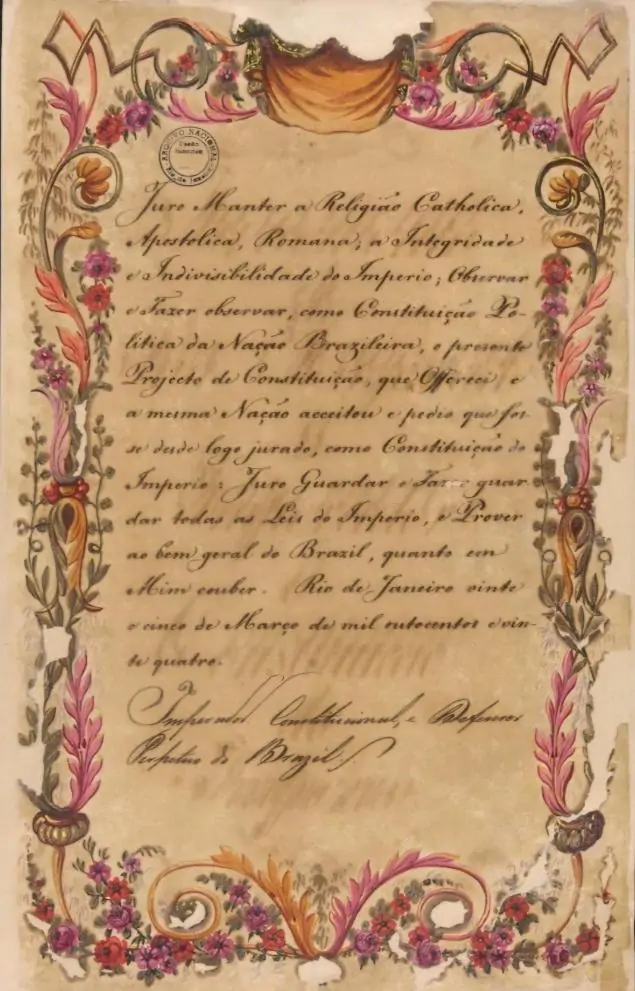 ARQUIVO NACIONAL
Juro Manter a Religião Catholica,
Apostolica, Romana; a Integridade
e Indivisibilidade do Imperio; Observar
e Fazer observar, como Constituição Po-
litica da Nação Brazileira, o prezente
Projecto de Constituição, que Offereci e
a mesma Nação acceitou e pedio que fos-
se desde logo jurado, como Constituição do
Imperio: Juro Guardar e Fazer guar-
dar todas as Leis do Imperio, e Prover
ao bem geral do Brazil, quanto em
Mim couber. Rio de Janeiro vinte
e cinco de Março de mil outocentos e vin-
te quatro.
Imperador Constitucional, e Defensor
Perpetuo do Brazil.